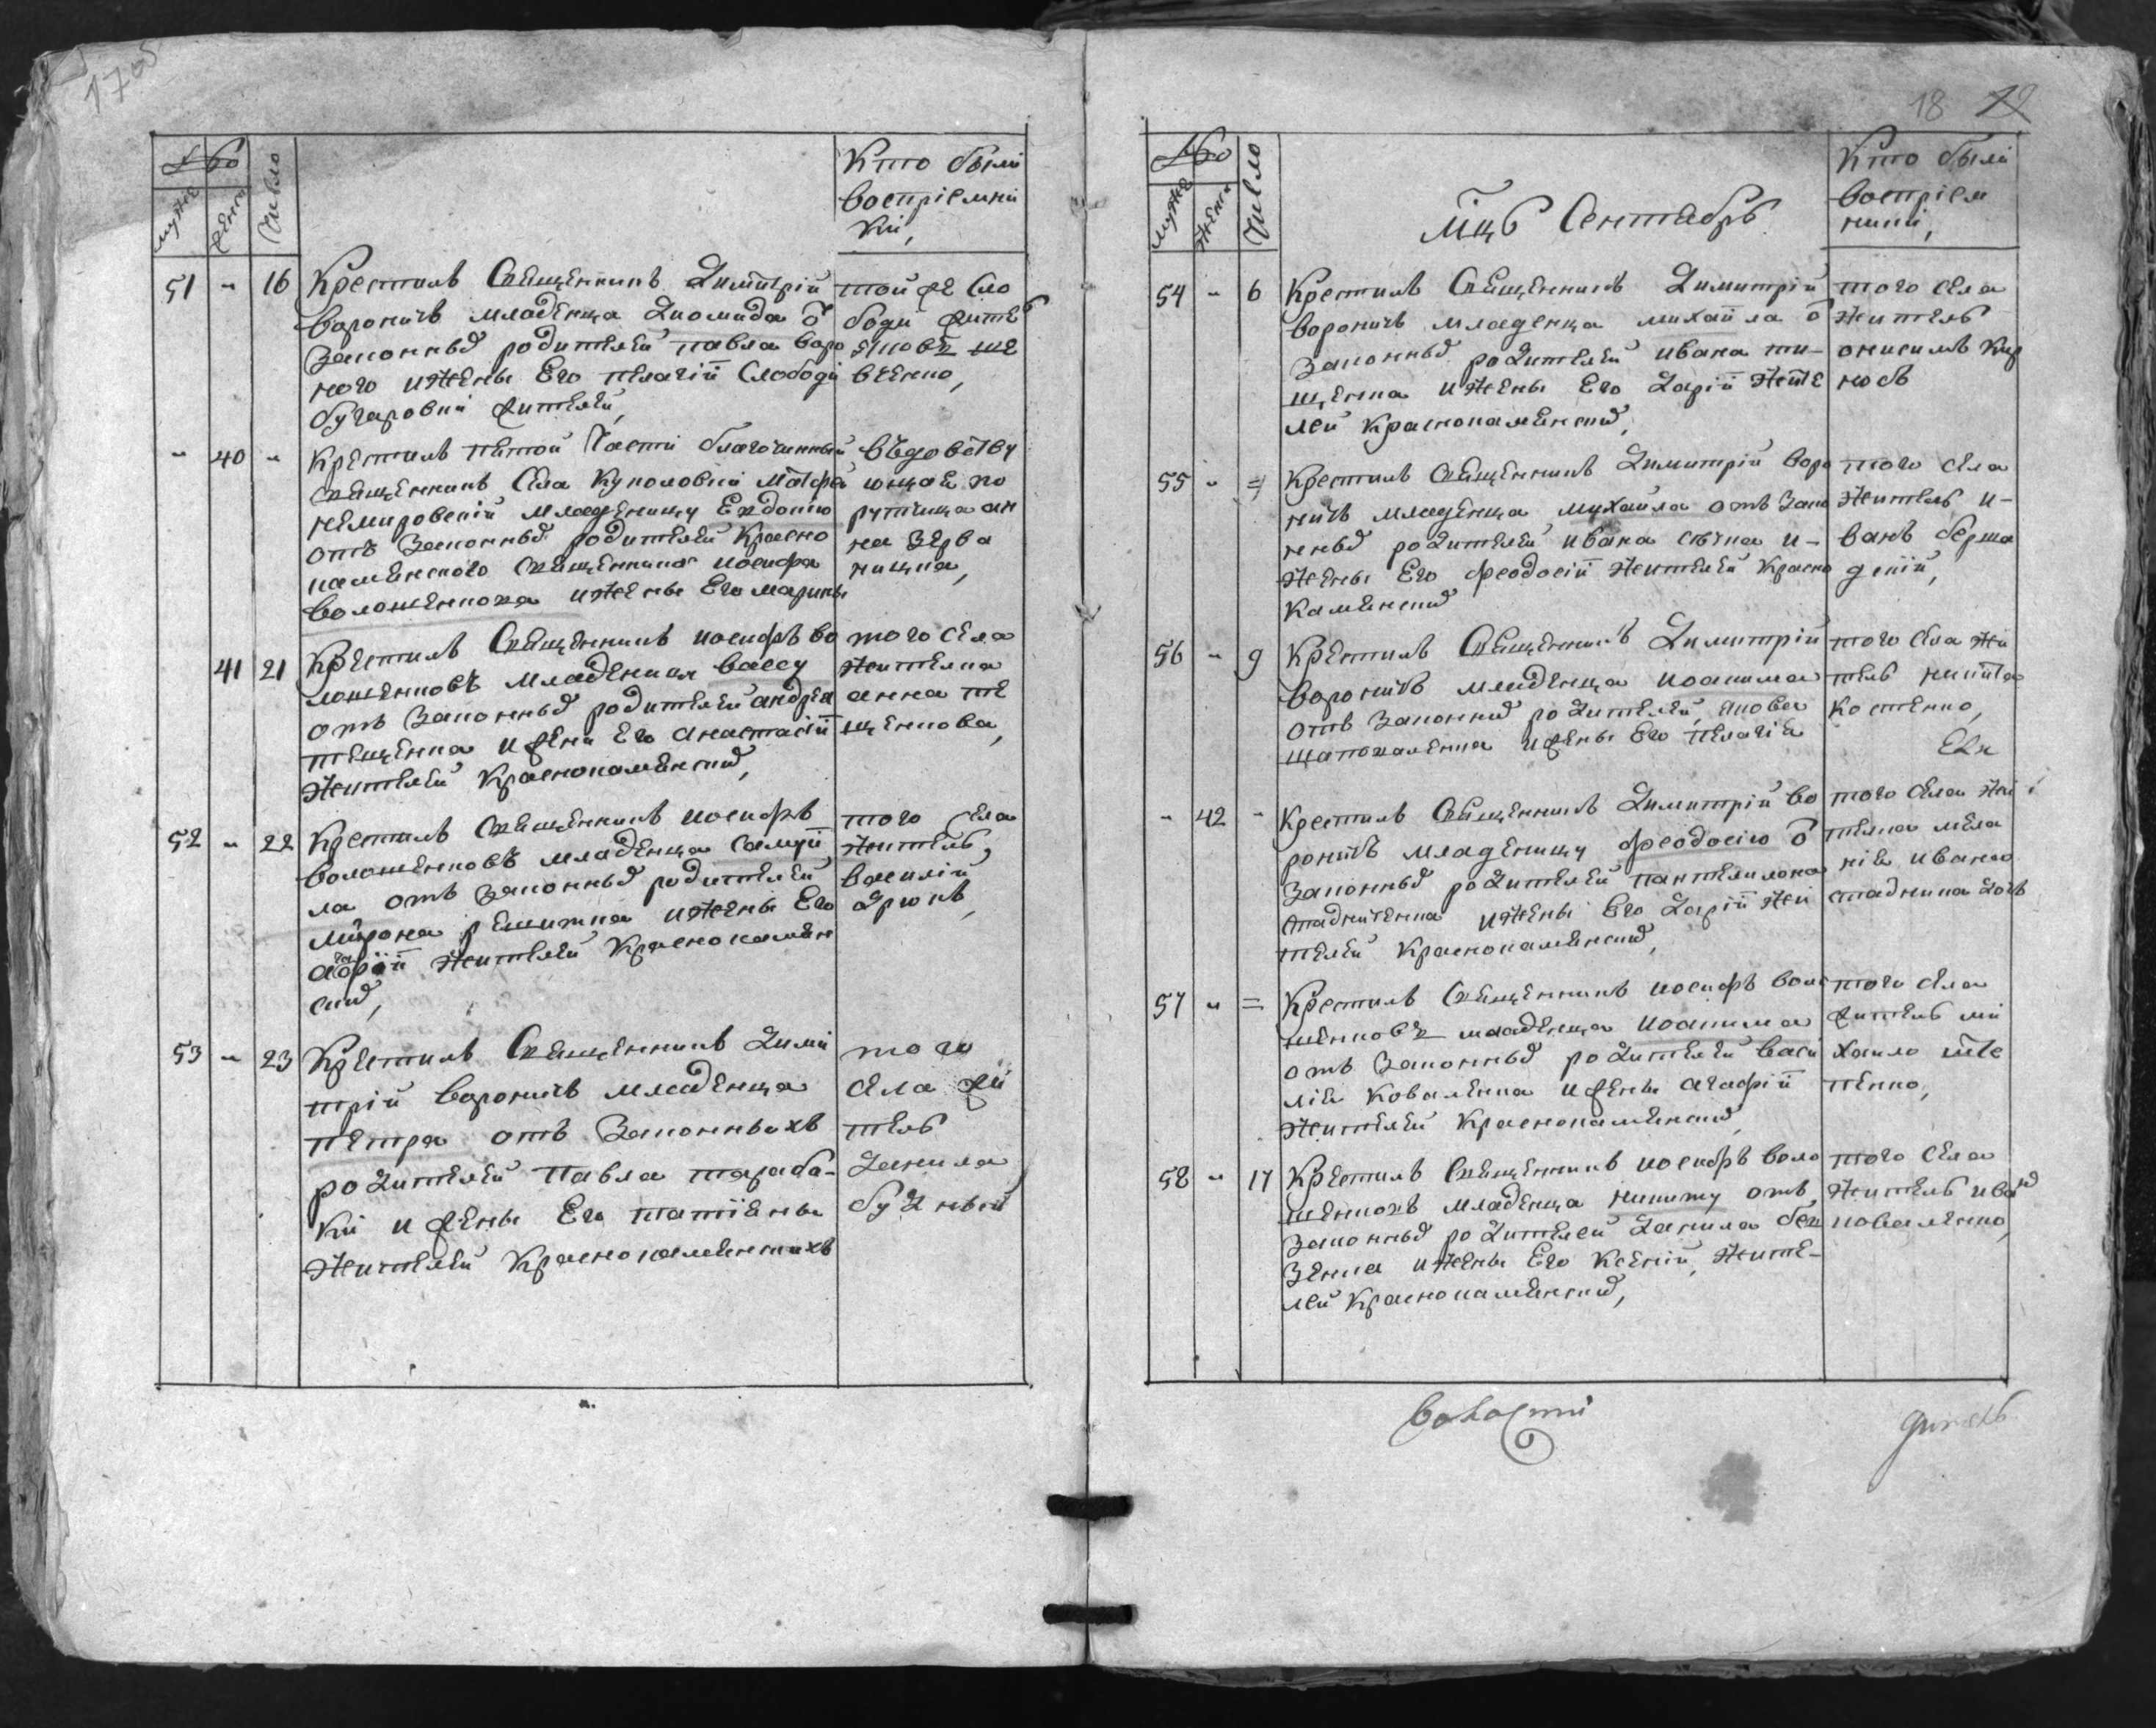 1705
№
муже
женс
Число
Кто были
воспріемни
ки,
51 " 16 Крестилъ Священникъ Димитрій
Вороничъ младенца Диомида ѿ
законныд родителей павла воро
ного ижены Его пелагіи Слободи
бугаровки жителей,
той же Сло
боди жител
яковъ ше
вченко,
" 40 " Крестилъ пятой Части благочинный
священникъ Села Куколовки Матфѣ
немировскій младеницу Евдокию
отъ законныд родителей Красно
каменского священника иосифа
волошенкова ижены Его марины
вѣдовству
ющая по
ручица ан
на
41 21 Крестилъ Священникъ иосифъ во
лошенковъ младеницу вассу
отъ законныд родителей андрея
тещенка ижени Его анастасіи
жителей Краснокаменскид,
того Села
жителка
анна те
щенкова,
52 " 22 Крестилъ Священникъ иосифъ
волошенковъ младенца самуи
ла отъ законныд родителей
мирона решитка ижены Его
агафіи жителей Краснокамен
скид,
того Села
житель,
василій
дрюкъ,
53 " 23 Крестилъ Священникъ Дими
трій Вороничъ младенца
петра отъ Законныхъ
родителей павла тараба-
ки ижены Его татіены
жителей Краснокаменскихъ
того
Села жи
тель
данила
будный
18 12
№
муже
женс
Число
Мцъ Сентябрь
Кто были
воспріем
ники,
54 " 6 Крестилъ Священникъ Димитрій
вороничъ младенца михаила ѿ
законныд родителей ивана ти-
щенка ижены Его дарій жите
лей Краснокаменскид,
того Села
житель
онисимъ Кир
носъ
55 " = Крестилъ Священникъ Димитрій воро
ничъ младенца михаила отъ зако
нныд родителей ивана сѣчка и-
жены Его феодосіи жителей Красно
каменскид
того Села
житель и-
ванъ берша
дскій,
56 " 9 Крестилъ Священникъ Димитрій
вороничъ младенца иоакима
отъ законнид родителей, якова
щаповаленка ижены Его пелагіи
того Села жи
тель никита
костенко,
" 42 " Крестилъ Священникъ Димитрій во
роничъ младеницу феодосію ѿ
законныд родителей пантелимона
стадниченка ижены Его дарій жи
телей Краснокаменскид,
того Села жи
телка мела
нія ивана
стадника дочь
57 " = Крестилъ Священникъ иосифъ воло
шенковъ младенца иоакима
отъ законныд родителей васи
лія коваленка ижены агафіи
жителей Краснокаменскид,
того Села
житель ми
хаило сте
пенко,
58 " 17 Крестилъ Священникъ иосифъ воло
шенковъ младенца никиту отъ
законныд родителей данила без
зенка ижены Его Ксеній, жите-
лей Краснокаменскид,
того Села
житель иванъ
коваленко,